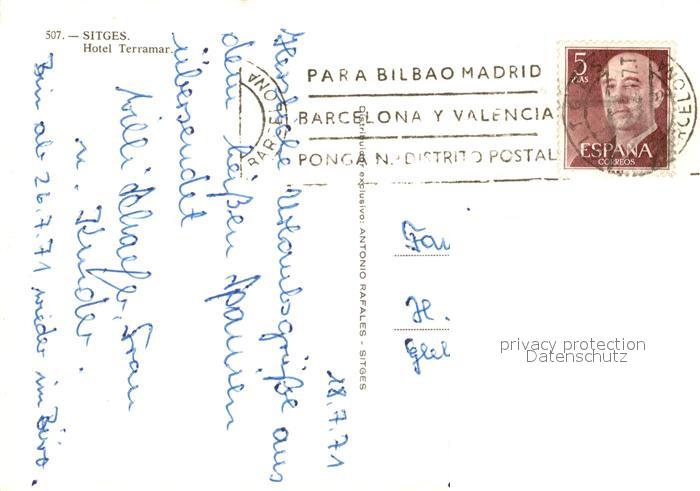 507. — SITGES.
Hotel Terramar.
PARA BILBAO MADRID
BARCELONA Y VALENCIA
PONGA N.º DISTRITO POSTAL
BARCELONA
5
PTAS
ESPAÑA
CORREOS
BARCELONA
Distribuidor exclusivo: ANTONIO RAFALES - SITGES
18.7.71
Herzliche Urlaubsgrüße aus
dem heißen Spanien
übersendet
Willi Schaefer, Frau
u. Kinder.
Bin ab 26.7.71 wieder im Büro.
Fam
H.
privacy protection
Datenschutz